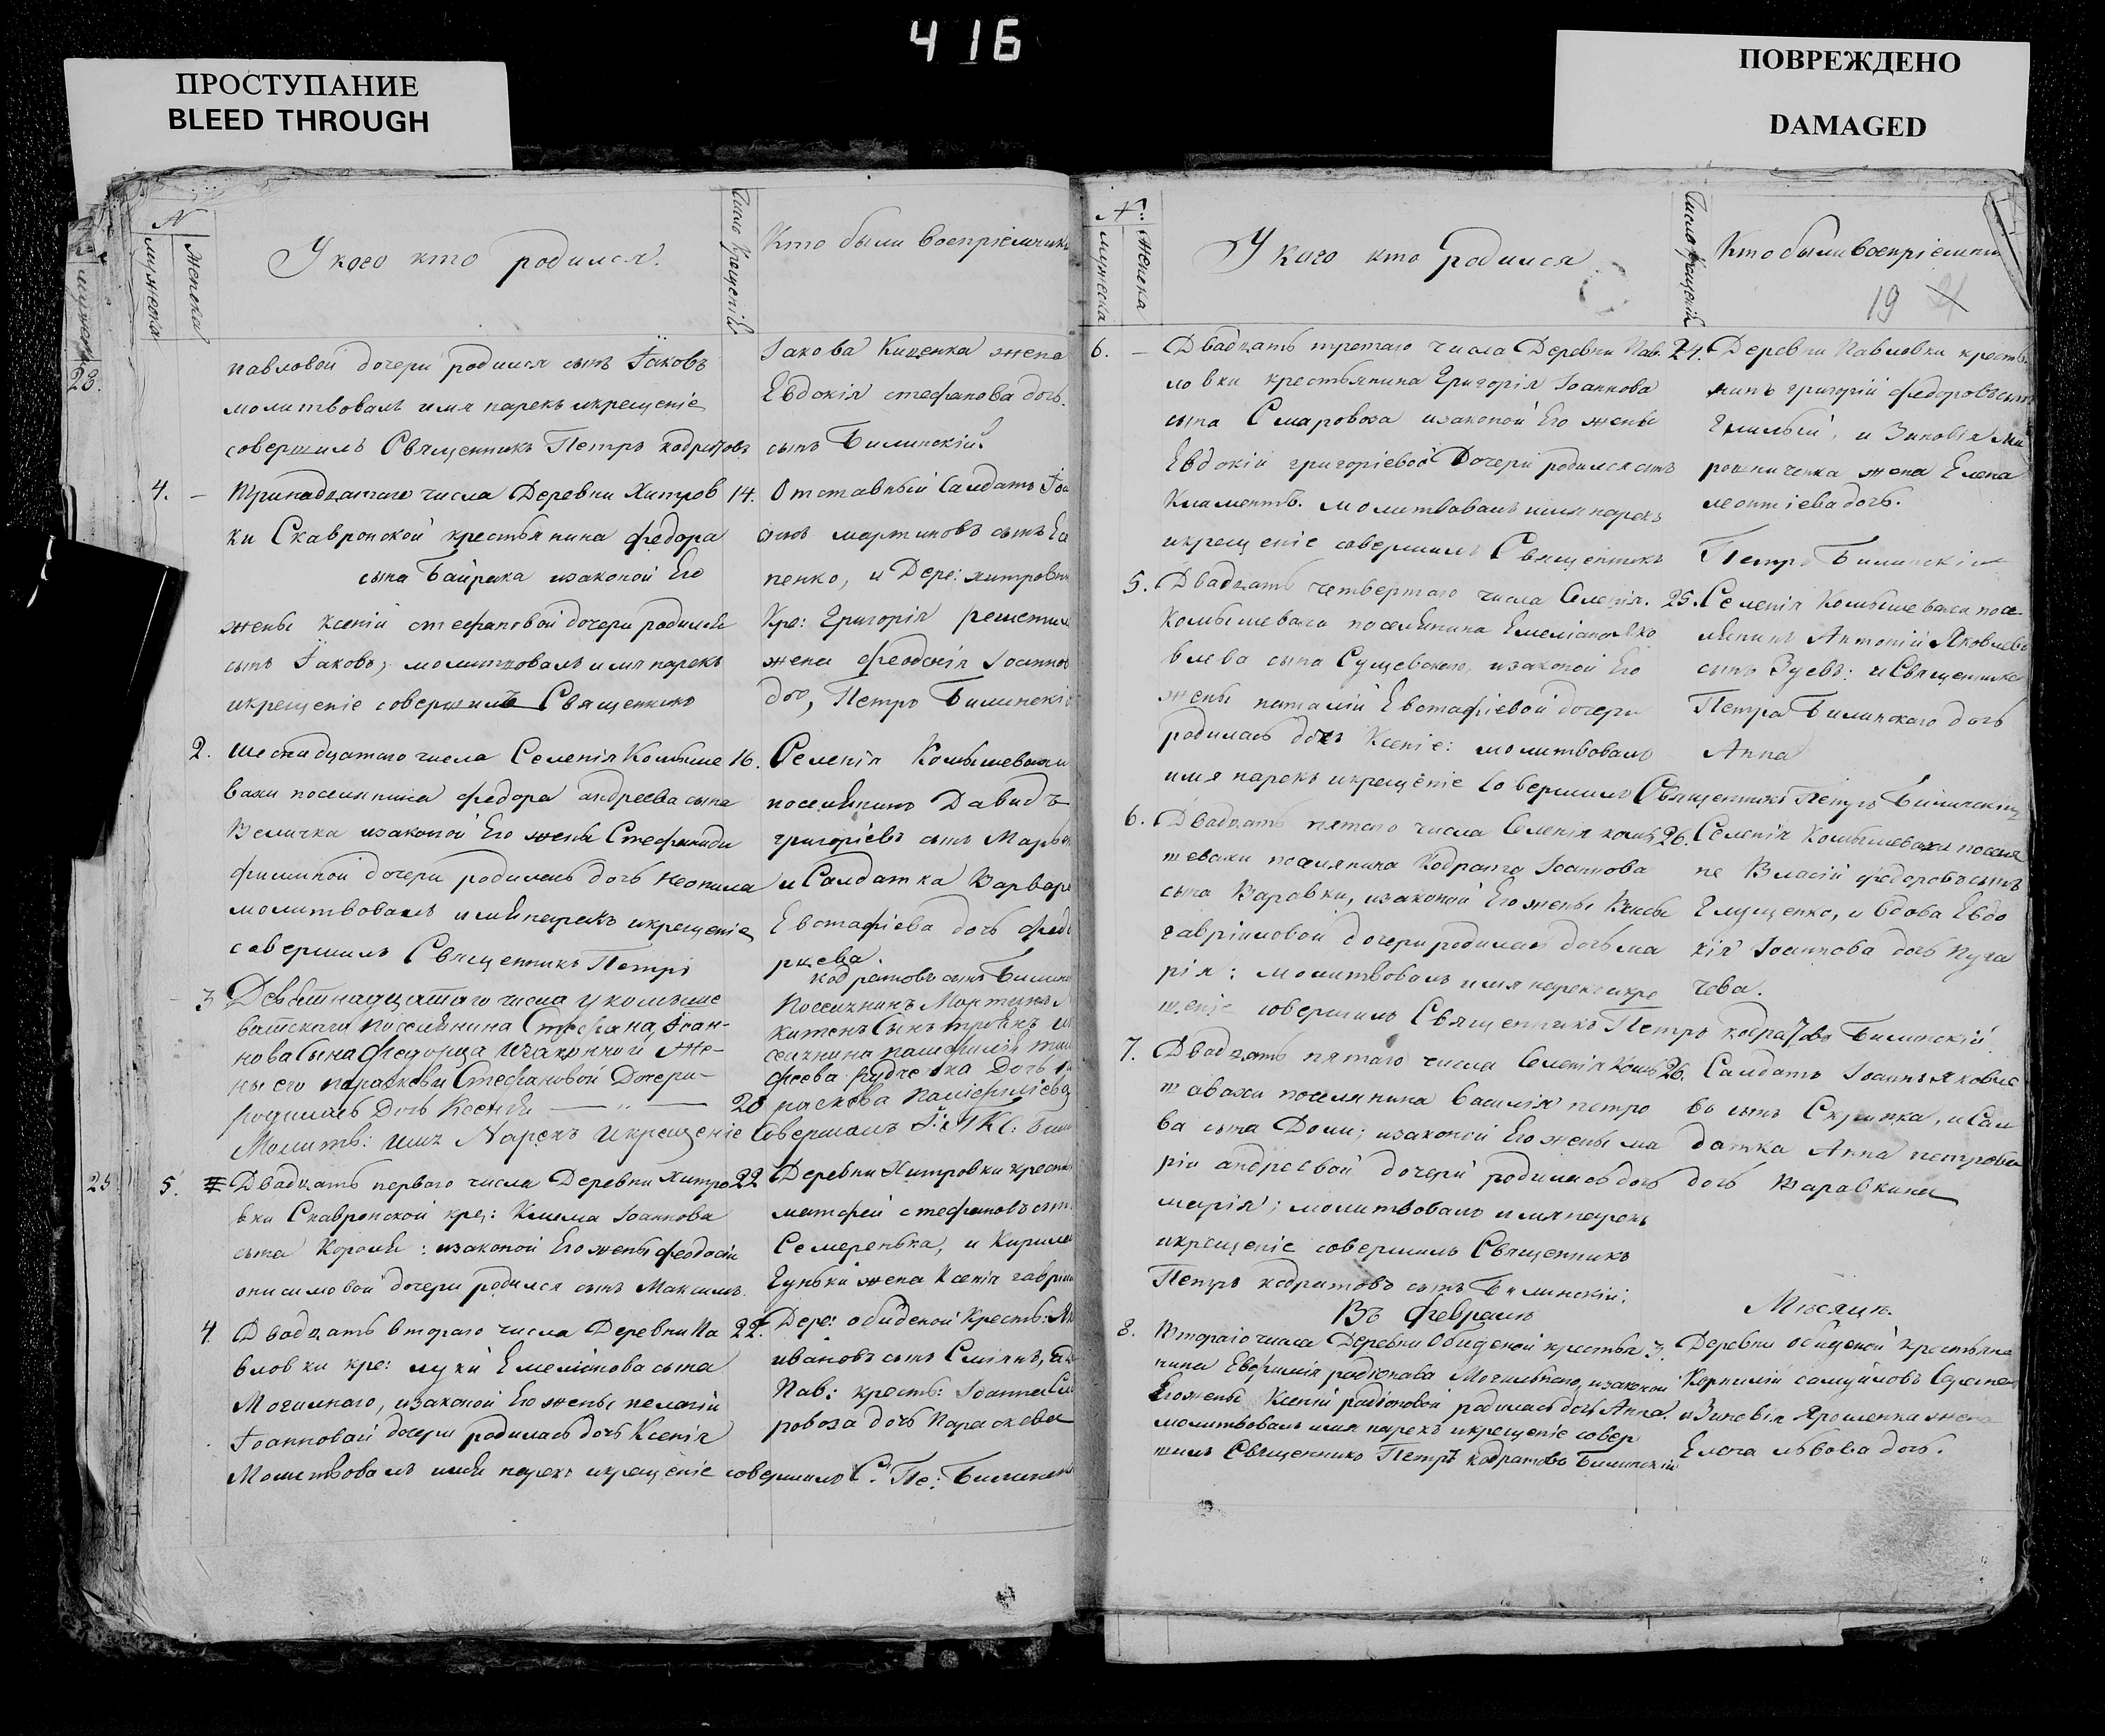 416
ПРОСТУПАНИЕ
BLEED THROUGH
ПОВРЕЖДЕНО
DAMAGED
23.
25
N
мужеска
женска
У кого кто родился.
Число крещенія
Кто были воспріемники
павловой дочери родился сынъ Іаковъ
молитвовалъ имя нарекъ икрещеніе
совершилъ Священникъ Петръ кодратовъ
Іакова Киценка жена
Евдокія стефанова дочь.
сынъ Билинскій.
4. – Тринадцатаго числа Деревни Хитров 14.
ки Скавронской крестьянина федора
сына Байрака изаконой Его
жены Ксеніи стефановой дочери родился
сынъ Іаковъ, молитвовалъ имя нарекъ
икрещеніе совершилъ Священникъ
Отставный Салдатъ
мартиновъ сынъ
пенко, и Дере: хитровки
Кре: Григорія
жена феодосія Іоаннов
до, Петръ Билинскі
2. шестнадцатаго числа Селенія Комыше 16.
вахи поселянина федора андреева сына
Величка изаконой Его жены Стефаниди
филиной дочери родилась дочь неонила
молитвовалъ имя нарекъ икрещеніе
совершилъ Священникъ Петръ
Селенія Комышевахи
поселянинъ Давидъ
григоріевъ сынъ
и Салдатка Варвара
Евстафіева дочь
рцева.
кодратовъ сынъ Билин
3 Девятнадцатого числа у комыше
ватскаго поселянина Стефана Іоан-
нова Сына Федорца изаконной же-
ны его параскеви Стефановой Дочери-
родилась Дочь Ксенія — „ — 20
Молитв: имя Нарекъ икрещеніе совершалъ
Поселянинъ Мартинъ
Сынъ
феева Дочь
раскова
5. Двадцать перваго числа Деревни Хитро 22
вки Скавронской кре: Клима Іоаннова
сына Короля: изаконой Его жены феодосіи
онисимовой дочери родился сынъ Максимъ.
Деревни Хитровки крестья
матфей стефановъ сынъ
Семеренька, и Кирила
Гуньки жена Ксенія гаврiил
4 Двадцать втораго числа Деревни Па 22.
вловки кре: луки Емеліянова сына
Могилнаго, изаконой Его жены пелагіи
Іоанновой дочери родилась дочь Ксенія
Молитвовалъ имя нарекъ икрещеніе совершилъ С. Пе: Билинск
Дере: обидной Кресть:
ивановъ сынъ
Пав: кресть: Іоанна См
ровоза дочь Параскева
N:
мужеска
женска
У каго кто родился
Число крещенія
Кто были воспріемни
19
6. – Двадцать третаго числа Деревни Пав. 24.
ловки крестьянина Григорія Іоаннова
сына Смаровоза изаконой Его жены
Евдокіи григоріевой Дочери родился сынъ
Климентъ. молитвовалъ имя нарекъ
икрещеніе совершилъ Священникъ
Деревни Павловки кресть
янинъ григорій федоровъ сынъ
и Зиновія
жена Елена
леонтіева дочь.
Петръ Билинскій
5. Двадцать четвертаго числа Селенія. 25.
Комышеваха поселянина Емеліана Яко
влева сына Сущевскаго, изаконой Его
жены наталіи Евстафіевой дочери
родилась дочь Ксеніе: молитвовалъ
имя нарекъ икрещеніе совершилъ Священникъ Петръ Билинскій
Селенія Комышеваха посе
лянинъ Антоній Яковлевъ
сынъ Зуевъ: и Священника
Петра Билинскаго дочь
Анна
6. Двадцать пятаго числа Селенія комы 26.
шевахи поселянина Кодрата Іоаннова
сына Варавки, изаконой Его жены
гавріиловой дочери родилась дочь ма
рія: молитвовалъ имя нарекъ икре
щеніе совершилъ Священникъ Петръ кодратовъ Билинскій
Селенія Комышевахи поселя
не Власій федоровъ сынъ
Глущенко, и вдова Евдо
кія Іоаннова дочь Пуга
чева.
7. Двадцать пятаго числа Селенія Комы 26.
шаваха поселянина василія петро
ва сына Доми; изаконой Его жены ма
ріи андреевой дочери родилась дочь
марія; молитвовалъ имя нарекъ
икрещеніе совершилъ Священникъ
Петръ кодратовъ сынъ Билинскій:
Салдатъ Іоаннъ Яковле
въ сынъ Скрипка, и Сал
датка Анна петрова
дочь Варавкина
Въ февралѣ
Мѣсяцѣ.
8. Втораго числа Деревни Обидной крестья 3.
нина Евфимія радіонова Могильнаго, изаконой
Его жены Ксеніи радіоновой родилась дочь Анна.
молитвовалъ имя нарекъ икрещеніе совер
шилъ Священникъ Петръ кодратовъ Билинскій
Деревни обидной крестьяне
Корнилій самуйловъ
и Зиновія Ярошенка жена
Елена львова дочь.